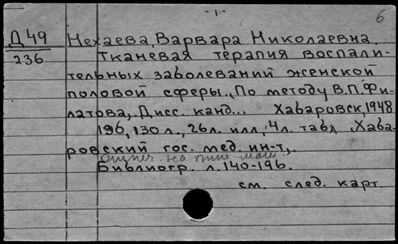 - 1 -
6
Д 49
236
Нехаева, Варвара Николаевна
Тканевая терапия воспали-
тельных заболеваний женской
половой сферы., По методу В.П. Фи-
латова., Дисс. канд... Хабаровск, 1948
196, 130 л., 26 л. илл., 4 л. табл., Хаба-
ровский гос. мед. ин-т,.
Отпеч. на пиш. маш.
Библиогр. л. 140-196.
см. след. карт.